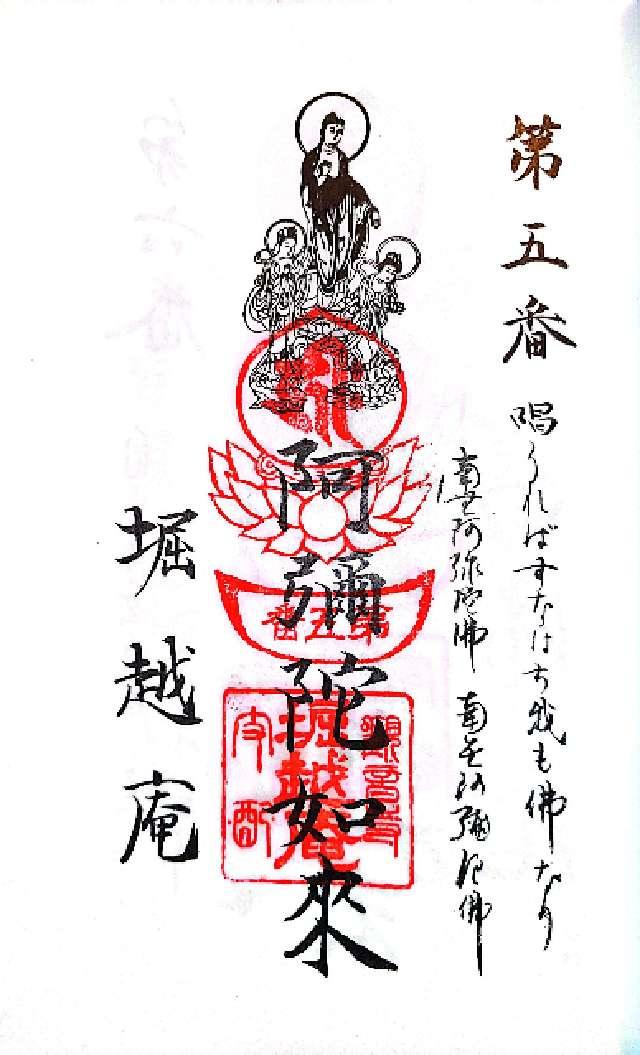 第五番
唱うればすなはち我も佛なり
南無阿弥陀佛 南無阿彌陀佛
阿彌陀如來
第五番
觀音寺
堀越庵
支配
堀越庵